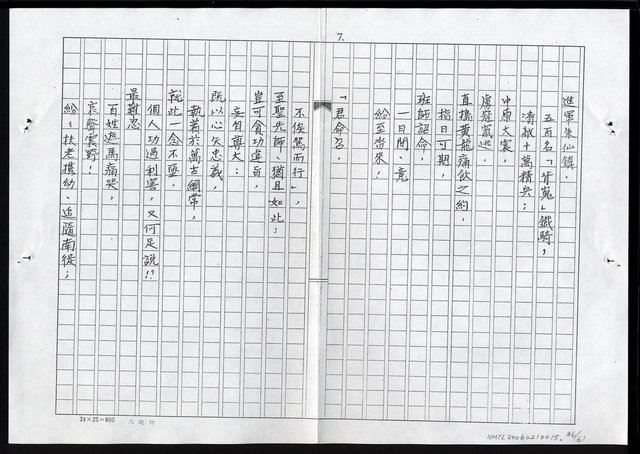 7.
進軍朱仙鎮，
五百名「背嵬」鐵騎，
清敵十萬精兵；
中原大震，
虜寇竄逃，
直搗黃龍痛飲之約，
指日可期，
班師詔命，
一日間、竟
紛至沓來，
「君命召，
不俟駕而行」，
至聖先師、猶且如此；
豈可貪功違旨，
妄自尊大；
既以心矢忠義，
執着於萬古綱常，
就此一念不堕，
個人功過利害，又何足說!?
最難忍
百姓遮馬痛哭，
哀聲震野，
紛々扶老携幼、追隨南徙；
24×25=600
NMTL20060210015. 36/61